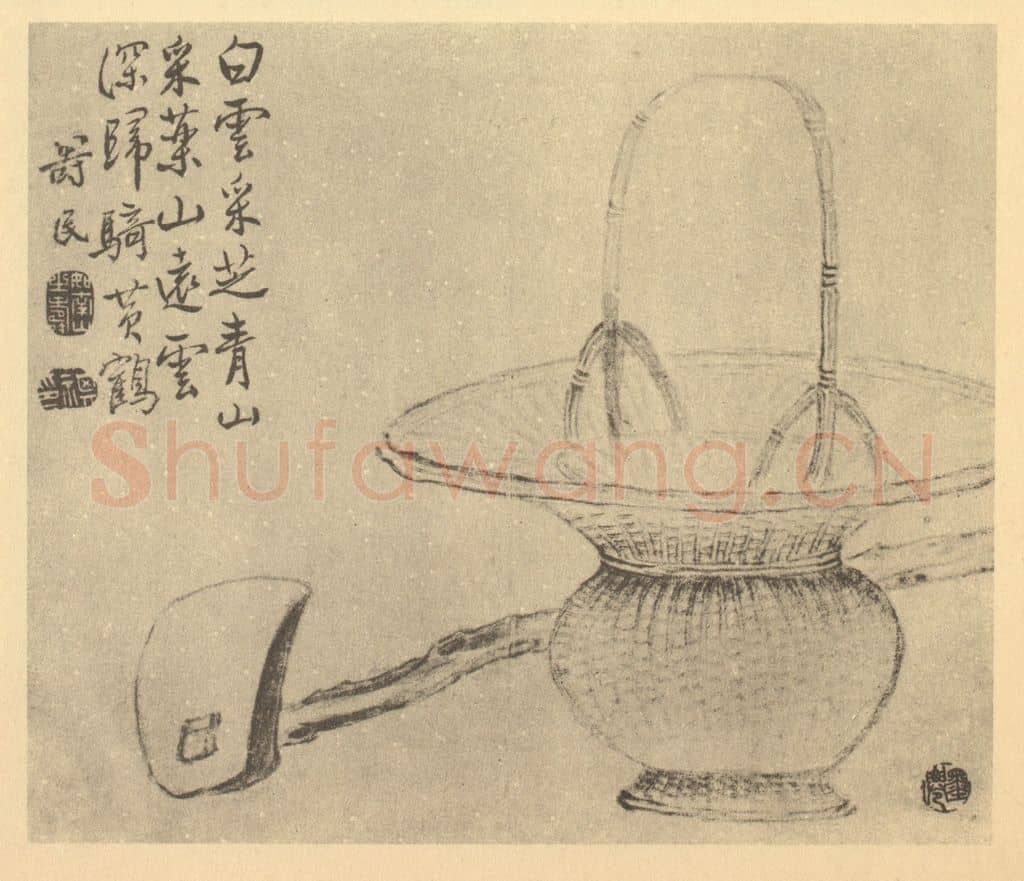 白雲采芝青山
采藥山遠雲
深歸騎黄鶴
壽民
Shufawang.CN